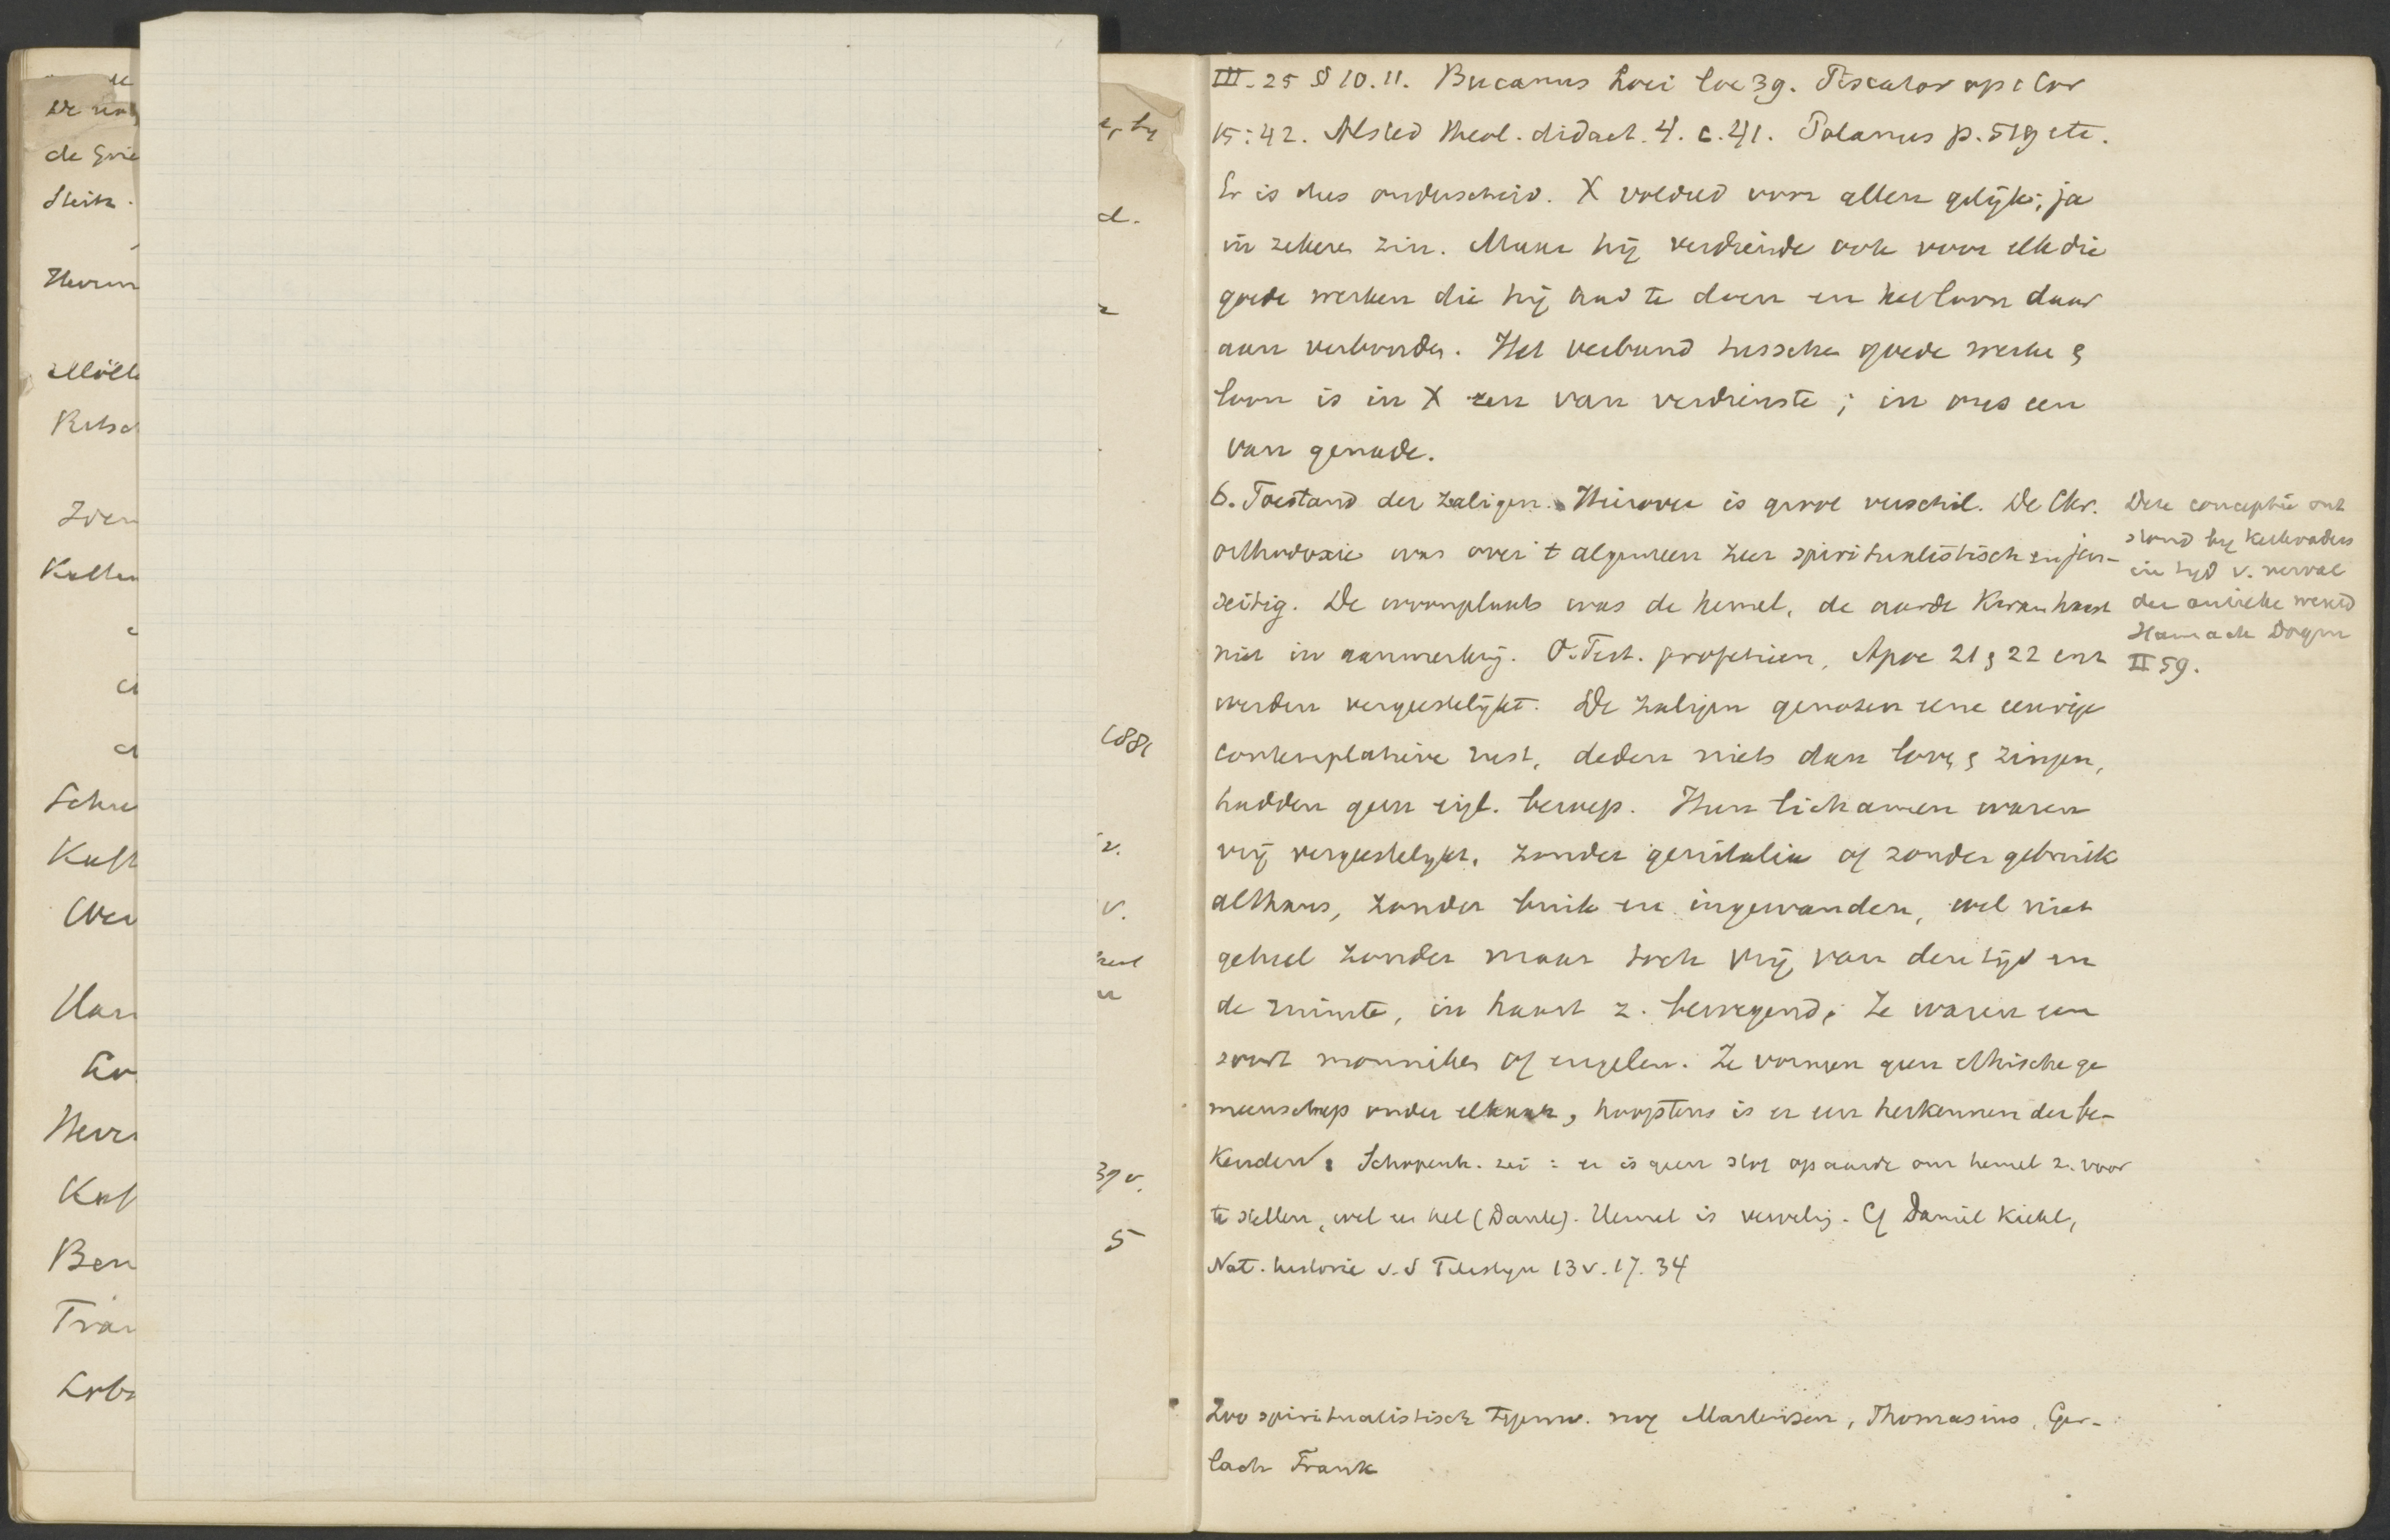 De
de Grie
Steitz.
Herm
Möll
Ritsc
Zoen
Schre
Kaft
Over
Harn
Herr
Kaf
Ben
Fran
, by
d.
1881
v.
v.
37 v.
5
III. 25 § 10. 11. Bucanus Loci loc 39. Piscator op 1 Cor
15:42. Alsted Theol. didact. 4. c. 41. Polanus p. 519 etc.
Er is dus onderscheid. X voldeed voor allen gelijk; ja
in zekere zin. Maar hij verdiende ook voor elk die
goede werken die hij had te doen en het loon daar
aan verbonden. Het verband tusschen goede werken &
loon is in X een van verdienste; in ons een
van genade.
6. Toestand der zaligen. Hierover is groot verschil. De Chr.
orthodoxie was over 't algemeen zeer spiritualistisch en jen-
seitig. De woonplaats was de hemel, de aarde kwam haast
niet in aanmerking. O. Test. profetieen, Apoc 21 & 22 enz
werden vergeestelijkt. De zaligen genoten eene eeuwige
contemplatieve rust, deden niets dan loven & zingen,
hadden geen eigl. beroep. Hun lichamen waren
vrij vergeestelijkt, zonder genitalia of zonder gebruik
althans, zonder buik en ingewanden, wel niet
geheel zonder maar toch vrij van den tijd en
de ruimte, in haast z. bewegend; Ze waren een
soort monniken of engelen. Ze vormen geen ethische ge
meenschap onder elkaar, hoogstens is er een herkennen der be-
kenden. Schopenh. zei: er is geen stof op aarde om hemel z. voor
te stellen, wel en hel (Dante). Hemel is vervelig. Cf Daniël Kiehl,
Nat. historie v. d 13 v. 17. 34
Zoo spiritualistisch nog Martensen, Thomasius, Ger-
lach Frank
Deze conceptie ont
stond bij Kerkvaders
in tijd v. verval
der antieke wereld
Harnack Dogm
II 59.